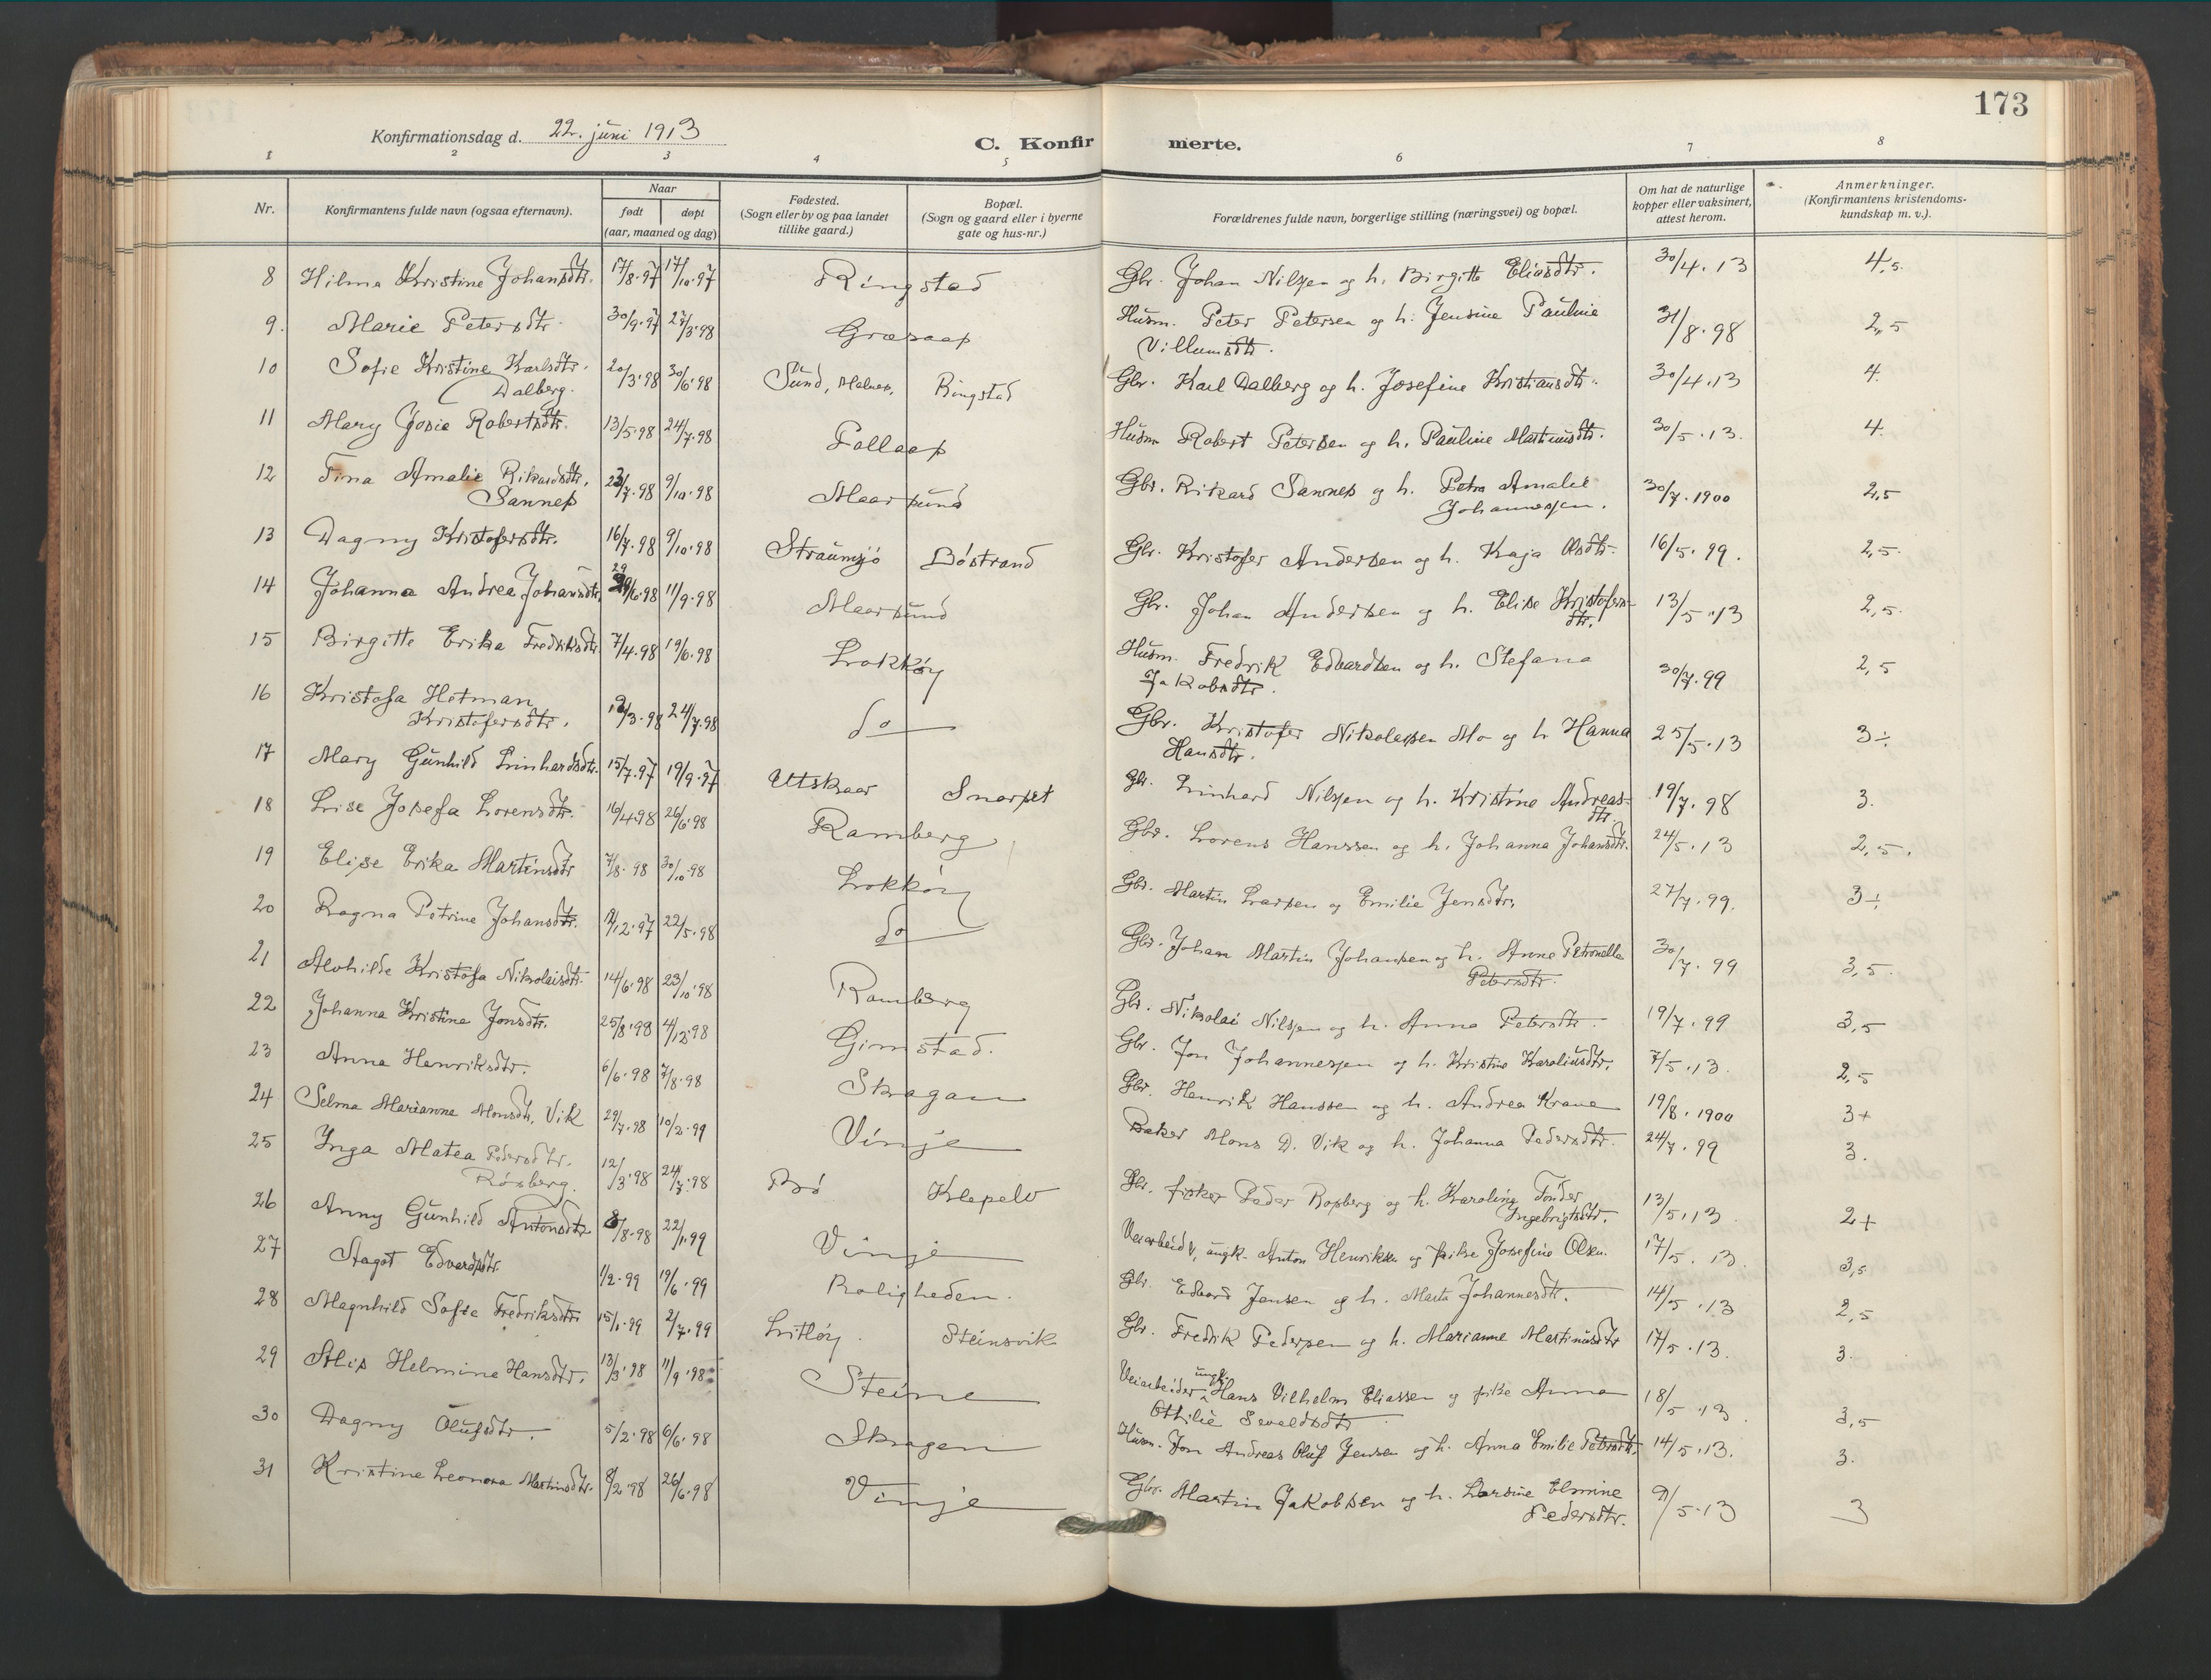 173
Konfirmationsdag d. 22. juni 1913
C. Konfirmerte.
1 2 3 4 5 6 7 8
Nr.
Konfirmantens fulde navn (ogsaa efternavn).
Naar
født døpt
(aar, maaned og dag)
Fødested.
(Sogn eller by og paa landet
tillike gaard.)
Bopæl.
(Sogn og gaard eller i byerne
gate og hus-nr.)
Forældrenes fulde navn, borgerlige stilling (næringsvei) og bopæl.
Om hat de naturlige
kopper eller vaksinert,
attest herom.
Anmerkninger.
(Konfirmantens kristendoms-
kundskap m. v.).
8 Hilma Kristine Johansdtr. 17/8.97 17/10.97 Ringstad Gbr. Johan Nilsen og h. Birgitte Eliasdtr. 30/4.13 4,5.
9. Marie Petersdtr. 30/9.97 27/3.98 Græsaas Husm. Peter Petersen og h. Jensine Pauline
Villumsdtr. 31/8.98 2,5
10 Sofie Kristine Karlsdtr.
Dalberg. 20/3.98 30/6.98 Sund, Malnes, Ringstad Gbr. Karl Dalberg og h. Josefine Kristiansdtr. 30/4.13 4.
11 Mary Josie Robertsdtr. 13/5.98 24/7.98 Follaas Husm Robert Petersen og h. Pauline Martinusdtr. 30/5.13. 4.
12 Tina Amalie Rikardsdtr.
Sannes 23/7.98 9/10.98 Maarsund Gbr. Rikard Sannes og h. Petra Amalie
Johannessen. 30/7.1900 2,5
13 Dagny Kristofersdtr. 16/7.98 9/10.98 Straumsjö Böstrand Gbr. Kristofer Andersen og h. Kaja Olsdtr. 16/5.99. 2,5.
14 Johanna Andrea Johansdtr. 29/6.98 11/9.98 Maarsund Gbr. Johan Andersen og h. Elise Kristofers-
dtr. 13/5.13 2,5.
15 Birgitte Erika Fredriksdtr. 7/4.98 19/6.98 Lokköy Husm. Fredrik Edvardsen og h. Stefana
Jakobsdtr. 30/7.99 2,5
16 Kristofa Hotman
Kristofersdtr. 12/3.98 24/7.98 do Gbr. Kristofer Nikolaisen Mo og h Hanna
Hansdtr. 25/5.13 3÷
17 Mary Gunhild Linhardsdtr. 15/7.97 19/9.97 Utskaar Snarset Gbr. Linhard Nilsen og h. Kristine Andreas-
dtr. 19/7.98 3.
18 Lise Josefa Lorensdtr. 16/4 98 26/6.98 Ramberg Gbr. Lorens Hanssen og h. Johanna Johansdtr. 24/5.13 2,5.
19 Elise Erika Martinsdtr 7/8.98 30/10.98 Lokköy Gbr. Martin Larsen og Emilie Jensdtr. 27/7.99. 3÷
20 Ragna Petrine Johansdtr. 12.97 22/5.98 do Gbr. Johan Martin Johansen og h. Anne Petronella
Petersdtr. 30/7.99 3,5.
21 Alvhilde Kristofa Nikolaisdtr. 14/6.98 23/10.98 Ramberg Gbr. Nikolai Nilsen og h. Anna Petersdtr. 19/7.99 3,5
22 Johanna Kristine Jonsdtr. 25/8.98 4/12.98 Gimstad. Gbr. Jon Johannessen og h. Kristine Karoliusdtr. 7/5.13. 2,5
23 Anna Henriksdtr. 6/6.98 7/8.98 Skagen Gbr. Henrik Hanssen og h. Andrea Krane 19/8.1900 3+
24 Selma Marianne Monsdtr. Vik 29/7.98 10/2.99 Vinje Baker Mons D. Vik og h. Johanna Pedersdtr. 24/7.99 3.
25 Inga Matea Pedersdtr.
Rösberg. 12/3.98 24/7.98 Bö Klepelv Gbr. fisker Peder Rosberg og h. Karoline Tönder
Ingebrigtsdtr. 13/5.13. 2+
26 Anny Gunhild Antonsdtr 8/8.98 22/1.99 Vinje Veiarbeider, ungk. Anton Henriksen og pike Josefine Olsen. 17/5.13. 3,5
27 Aagot Edvardsdtr. 1/2.99 19/6.99 Roligheden. Gbr. Edvard Jensen og h. Marta Johannesdtr. 14/5.13 2,5
28 Magnhild Sofie Fredriksdtr 15/1.99 2/7.99 Litlöy. Steinsvik Gbr. Fredrik Pedersen og h. Marianne Martinusdtr 17/5.13. 3.
29 Alis Helmine Hansdtr. 13/3.98 11/9.98 Steine Veiarbeider ungk. Hans Vilhelm Eliassen og pike Anna
Othilie Sevaldsdtr 18/5.13. 3,5
30 Dagny Olufsdtr. 5/2.98 6/6.98 Skagen Husm. Jon Andreas Oluf Jensen og h. Anna Emilie Petersdtr. 14/5.13. 3.
31 Kristine Leonora Martinsdtr. 8/2.98 26/6.98 Vinje Gbr. Martin Jakobsen og h. Larsine Elmine
Pedersdtr. 9/5.13 3